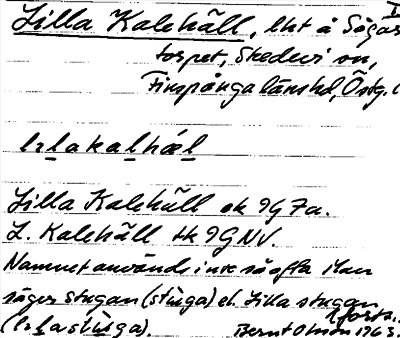 Lilla Kalehäll, lht å Sågar
torpet, Skedevi sn,
Finspånga länshd, Östg. l
lɩlakalhæl
Lilla Kalehäll ek 9G 7a.
L. Kalehäll tk 9G NV.
Namnet används inte så ofta Man
säger stugan (stuga) el. Lilla stugan
(lɩlastuga). Bernt Olsson 1963.